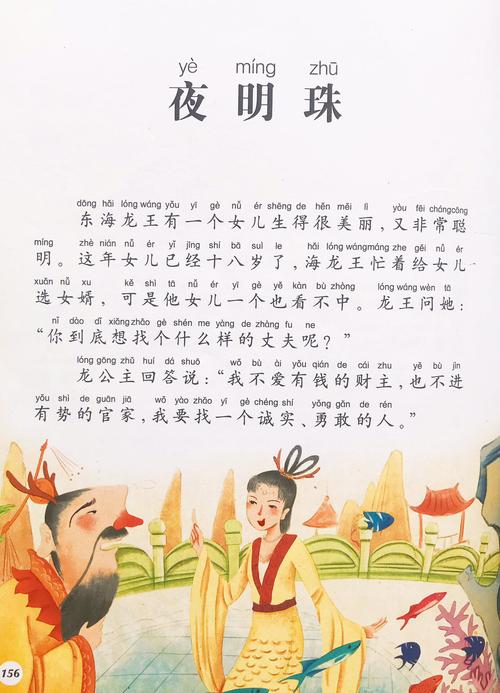 yè míng zhū
夜明珠
dōng hǎi lóng wáng yǒu yí gè nǚ ér shēng de hěn měi lì yòu fēi cháng cōng
东海龙王有一个女儿生得很美丽,又非常聪
míng zhè nián nǚ ér yǐ jīng shí bā suì le hǎi lóng wáng máng zhe gěi nǚ ér
明。这年女儿已经十八岁了,海龙王忙着给女儿
xuǎn nǚ xu kě shì tā nǚ ér yí gè yě kàn bù zhòng lóng wáng wèn tā
选女婿,可是他女儿一个也看不中。龙王问她:
nǐ dào dǐ xiǎng zhǎo gè shén me yàng de zhàng fu ne
“你到底想找个什么样的丈夫呢?”
lóng gōng zhǔ huí dá shuō wǒ bù ài yǒu qián de cái zhu yě bù jìn
龙公主回答说:“我不爱有钱的财主,也不进
yǒu shì de guān jiā wǒ yào zhǎo yí gè chéng shí yǒng gǎn de rén
有势的官家,我要找一个诚实、勇敢的人。”
156